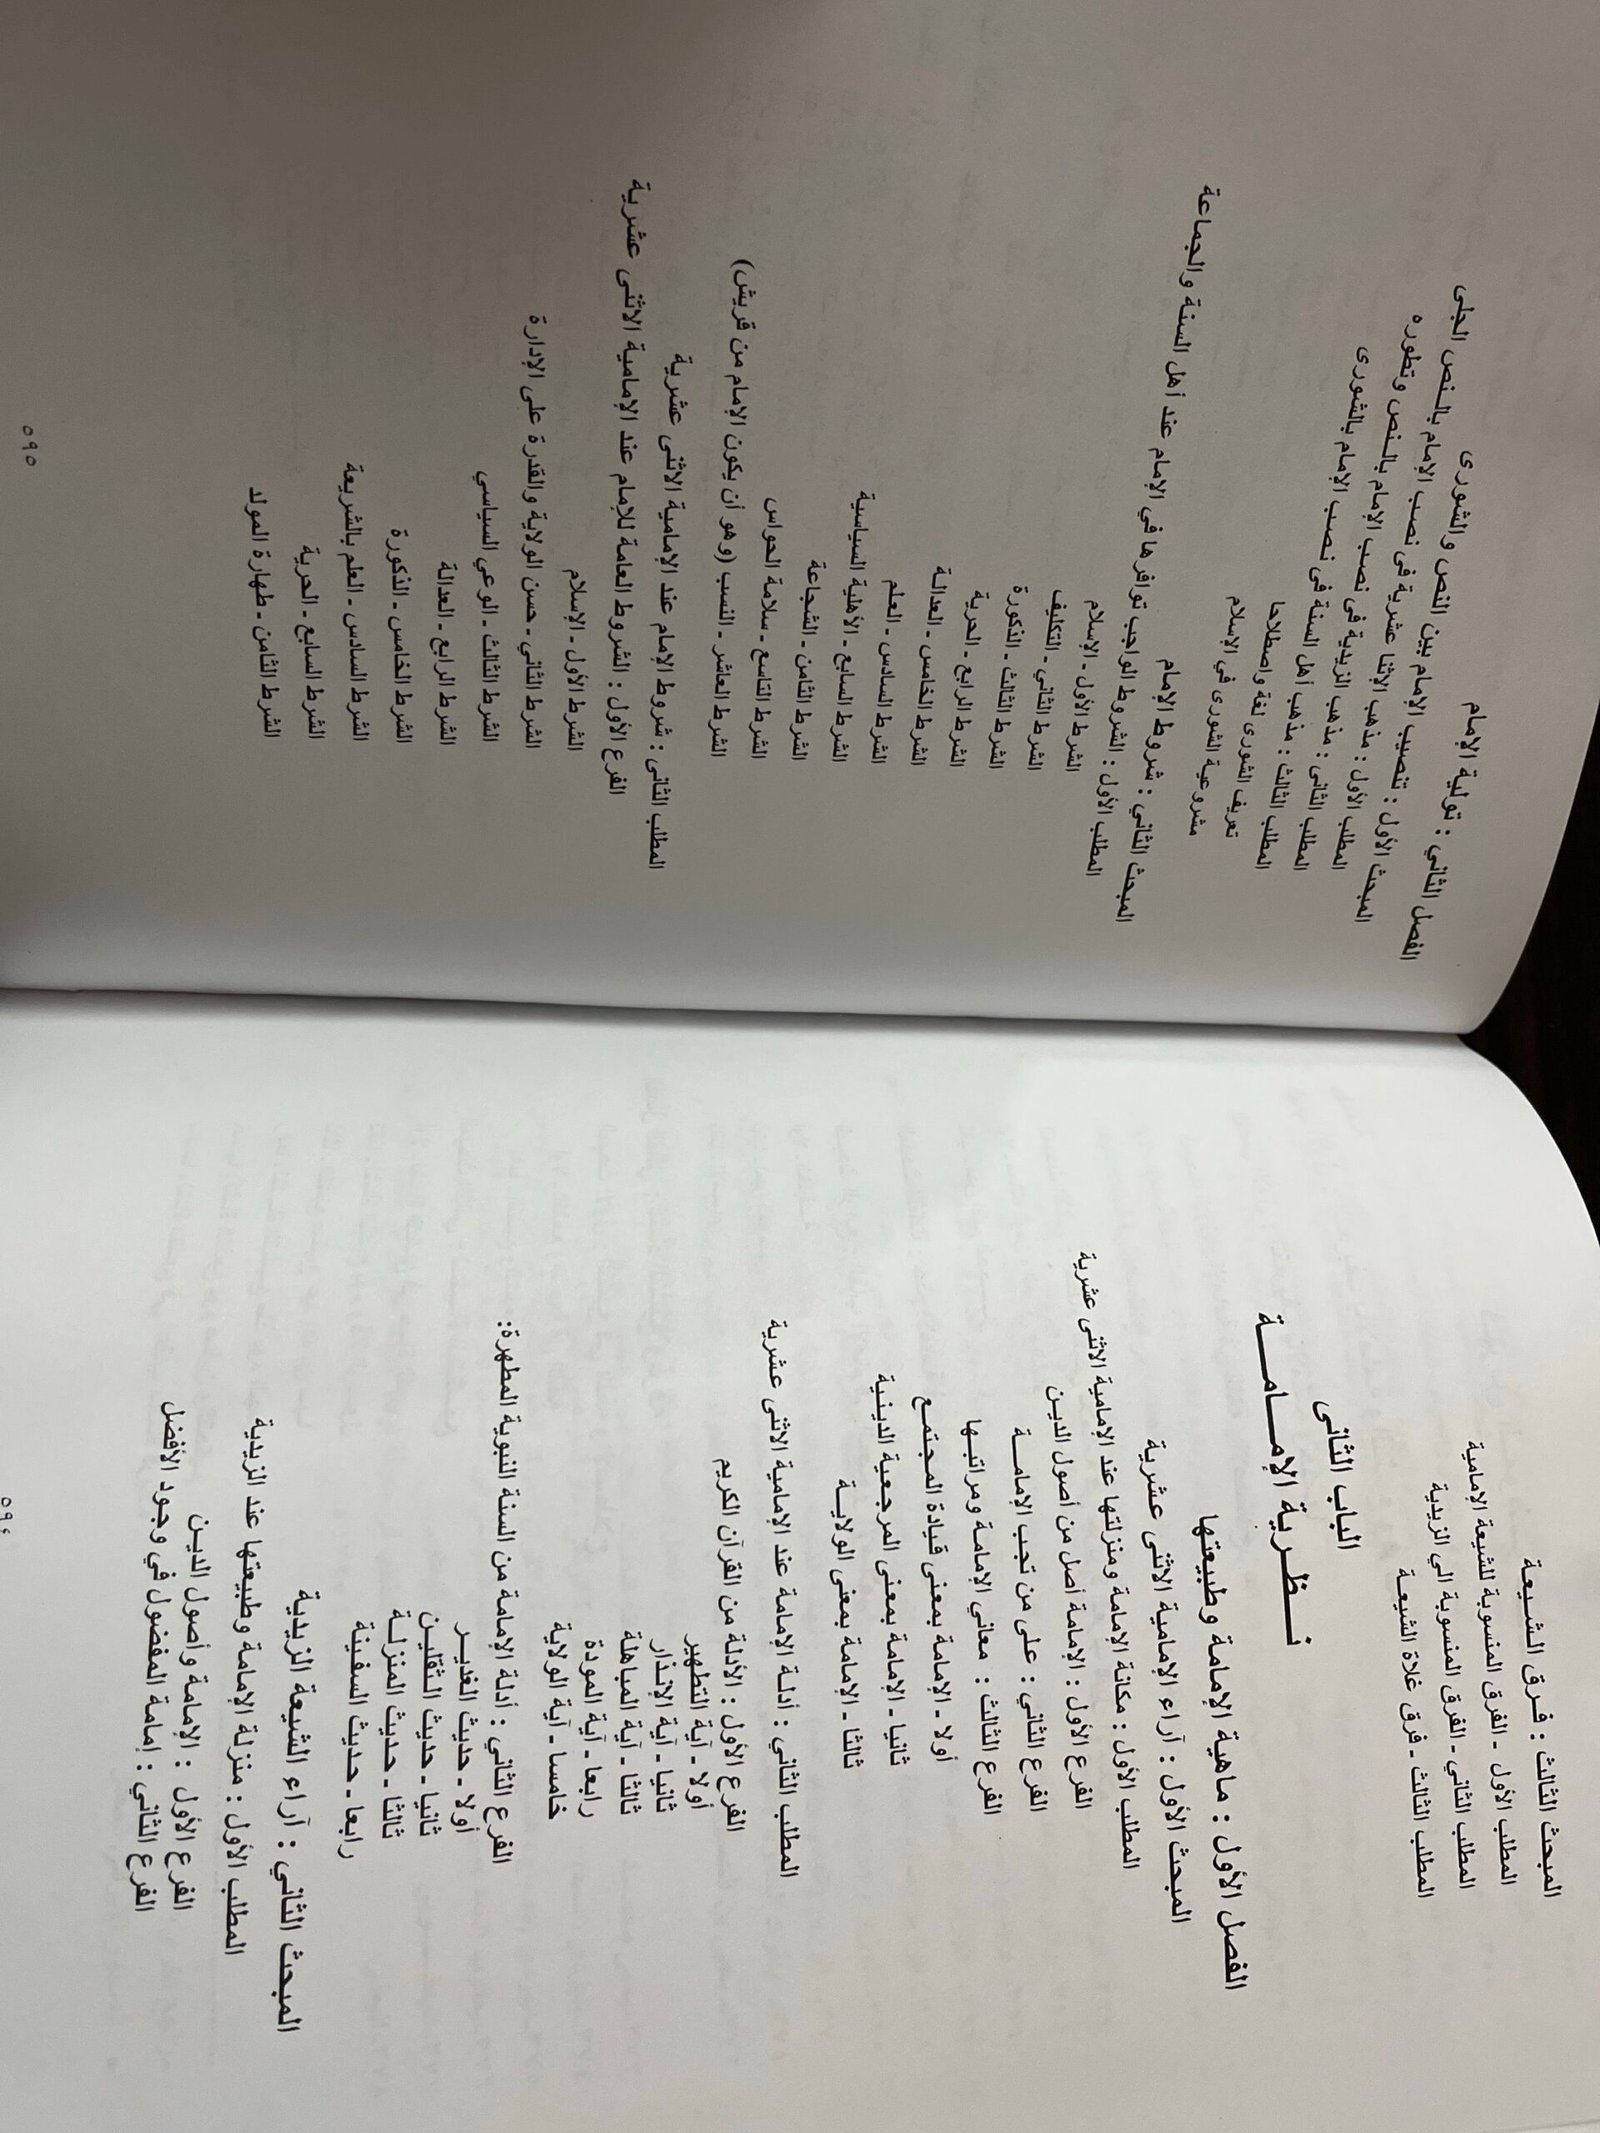 المبحث الثالث : فـرق الـشـيـعـة
المطلب الأول - الفرق المنسوبة للشيعة الإمامية
المطلب الثاني - الفرق المنسوبة الي الزيدية
المطلب الثالث - فرق غلاة الشيعـة
الباب الثانى
نـــظـــرية الإمـــــامـــــة
الفصل الأول : ماهية الإمامة وطبيعتها
المبحث الأول : آراء الإمامية الاثنى عشرية
المطلب الأول : مكانة الإمامة ومنزلتها عند الإمامية الاثنى عشرية
الفرع الأول : الإمامة أصل من أصول الديـن
الفرع الثاني : على من تجب الإمامـــة
الفرع الثالث : معاني الإمامـة ومراتبـها
أولا - الإمامة بمعنى قيادة المـجتمـع
ثانيا - الإمامة بمعنى المرجـعية الدينـية
ثالثا - الإمامة بمعنى الولايــة
المطلب الثاني : أدلـة الإمامة عند الإمامية الاثنى عشرية
الفرع الأول : الأدلة من القرآن الكريم
أولا - آية التطهير
ثانيا - آية الإنـذار
ثالثا - آية المباهلة
رابعا - آية المودة
خامسا - آية الولاية
الفرع الثاني : أدلة الإمامة من السنة النبوية المطهرة:
أولا - حديث الغديـر
ثانيا - حديث الثقليـن
ثالثا - حديث المنزلـة
رابعا - حديث السفينة
المبحث الثاني : آراء الشيعة الزيدية
المطلب الأول : منزلة الإمامة وطبيعتها عند الزيدية
الفرع الأول : الإمامة وأصول الديـن
الفرع الثاني : إمامة المفضول في وجود الأفضل
٥٩٤
الفصل الثاني : تولية الإمام
المبحث الأول : تنصيب الإمام بين النص والشورى
المطلب الأول : مذهب الإثنا عشرية فى نصب الإمام بالـنص الجلى
المطلب الثانى : مذهب الزيدية فى نصب الإمام بالـنص وتطوره
المطلب الثالث : مذهب أهل السنة فى نصب الإمام بالشورى
تعريف الشورى لغة واصطلاحا
مشروعية الشورى في الإسلام
المبحث الثاني : شروط الإمام
المطلب الأول : الشروط الواجب توافرها في الإمام عند أهل السنة والجماعة
الشرط الأول - الإسلام
الشرط الثاني - التكليف
الشرط الثالث - الذكورة
الشرط الرابع - الحرية
الشرط الخامس - العدالـة
الشرط السادس - العلم
الشرط السابع - الأهلية السياسية
الشرط الثامن - الشجاعة
الشرط التاسع - سلامة الحواس
الشرط العاشر - النسب (وهو أن يكون الإمام من قريش)
المطلب الثانى : شروط الإمام عند الإمامية الاثنى عشرية
الفرع الأول : الشروط العامة للإمام عند الإمامية الاثنى عشرية
الشرط الأول - الإسلام
الشرط الثاني - حسن الولاية والقدرة على الإدارة
الشرط الثالث - الوعي السياسي
الشرط الرابع - العدالة
الشرط الخامس - الذكورة
الشرط السادس - العلم بالشريعة
الشرط السابع - الحرية
الشرط الثامن - طهارة المولد
٥٩٥